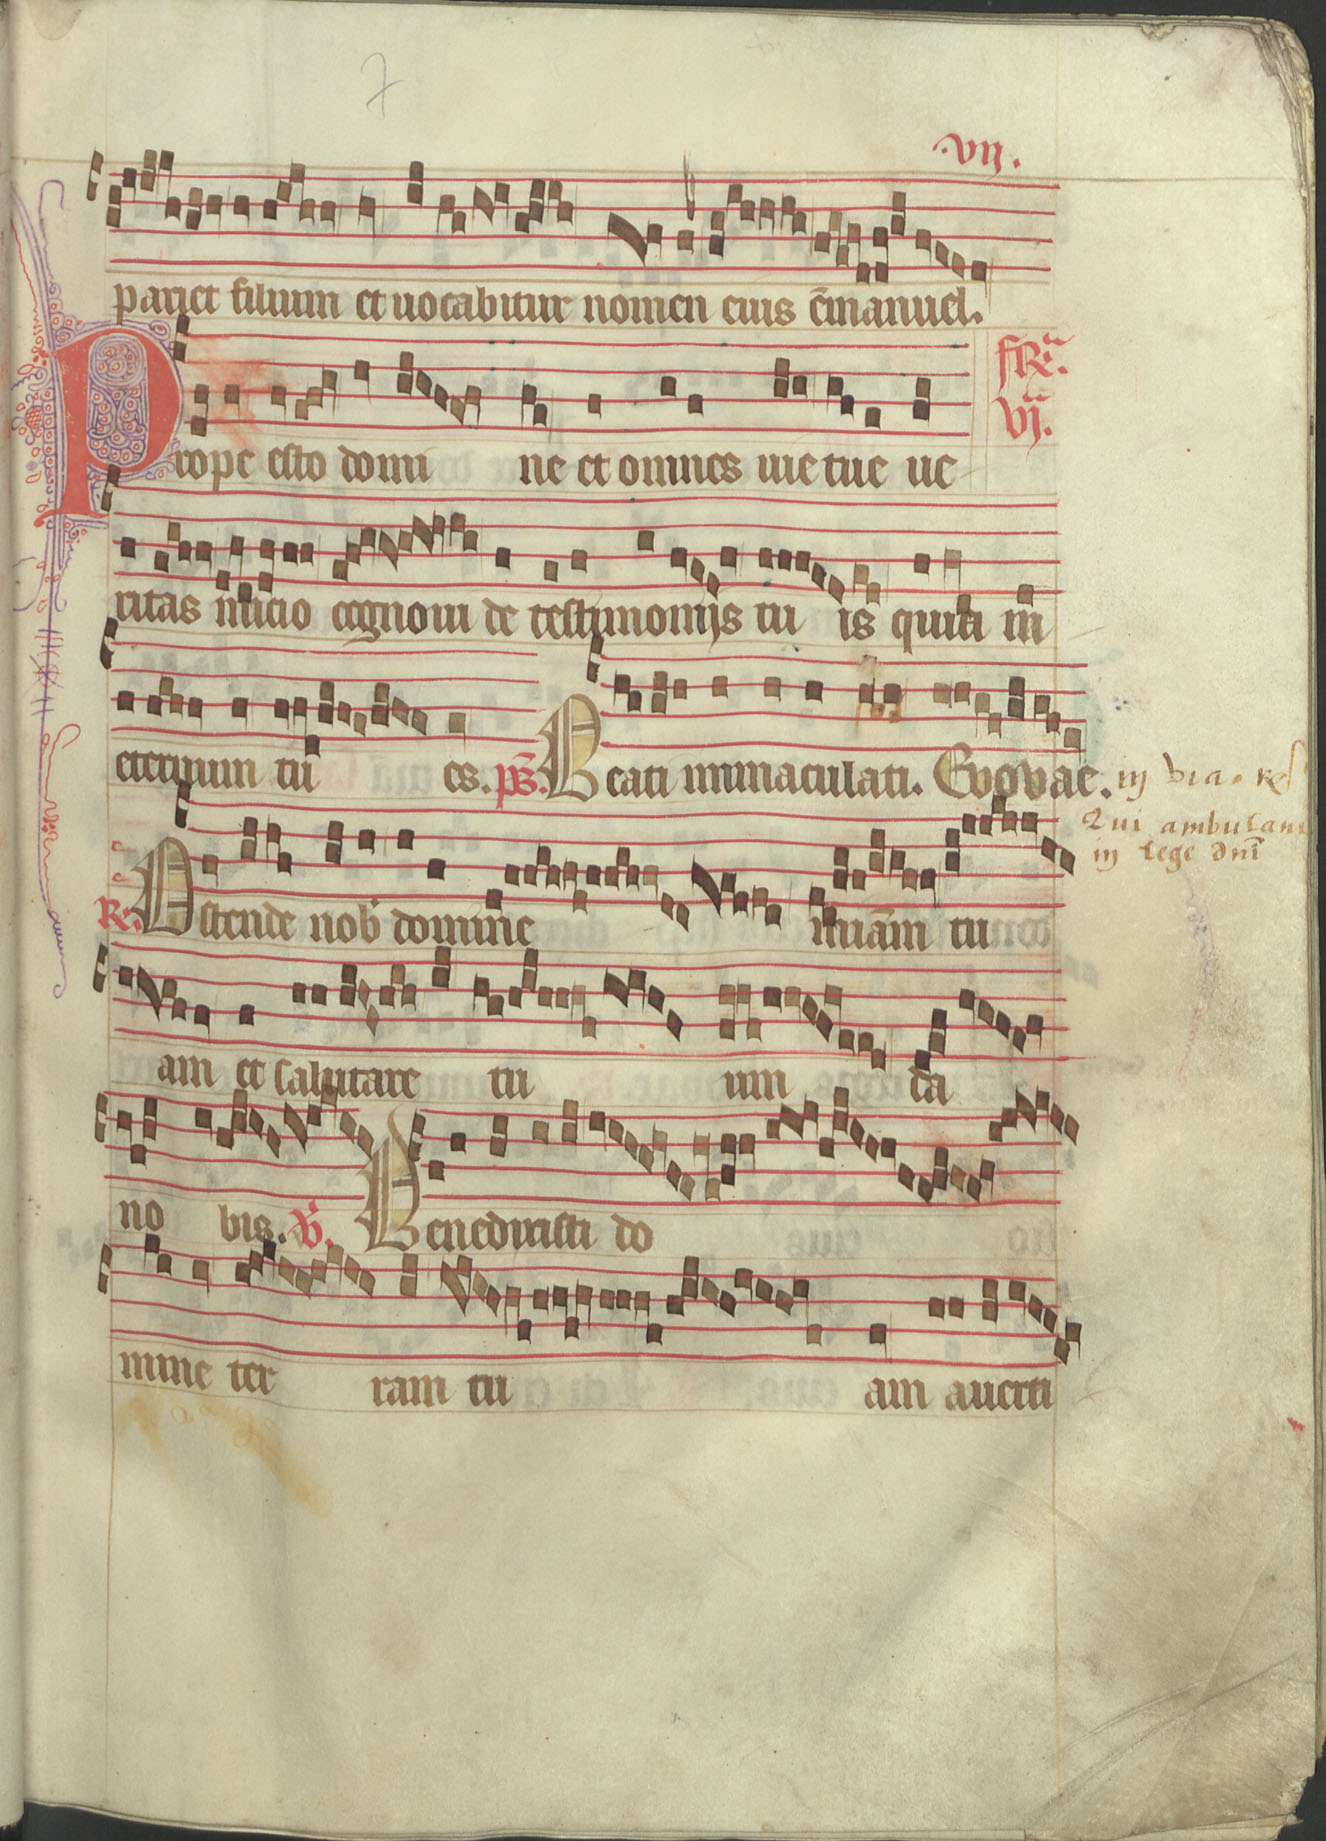 7
.vij.
pariet filium et uocabitur nomen eius ēmanuel.
fR̄a.
vj.
Prope esto domi ne et omnes uie tue ue
ritas inicio cognoui de testimonijs tu is quia in
eternum tu es. ps. Beati immaculati. Evovae. in via. Rͨ
Qui ambulant
in lege dn̄i
R. Ostende nob̄ domine miām tu
am et salutare tu um da
no bis. V. Benedixisti do
mine ter ram tu am auerti